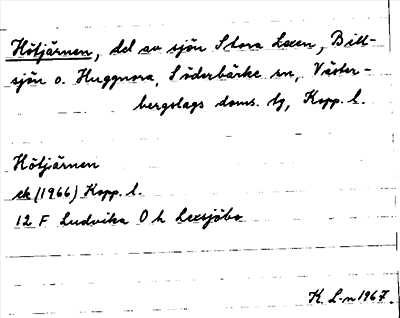 Hötjärnen, del av sjön Stora Lexen, Bitt-
sjön o. Huggnora, Söderbärke sn, Väster-
bergslags doms. tg, Kopp. l.
Hötjärnen
ek (1966) Kopp. l.
12 F Ludvika 0 h Lexsjöbo
K. L-n 1967.